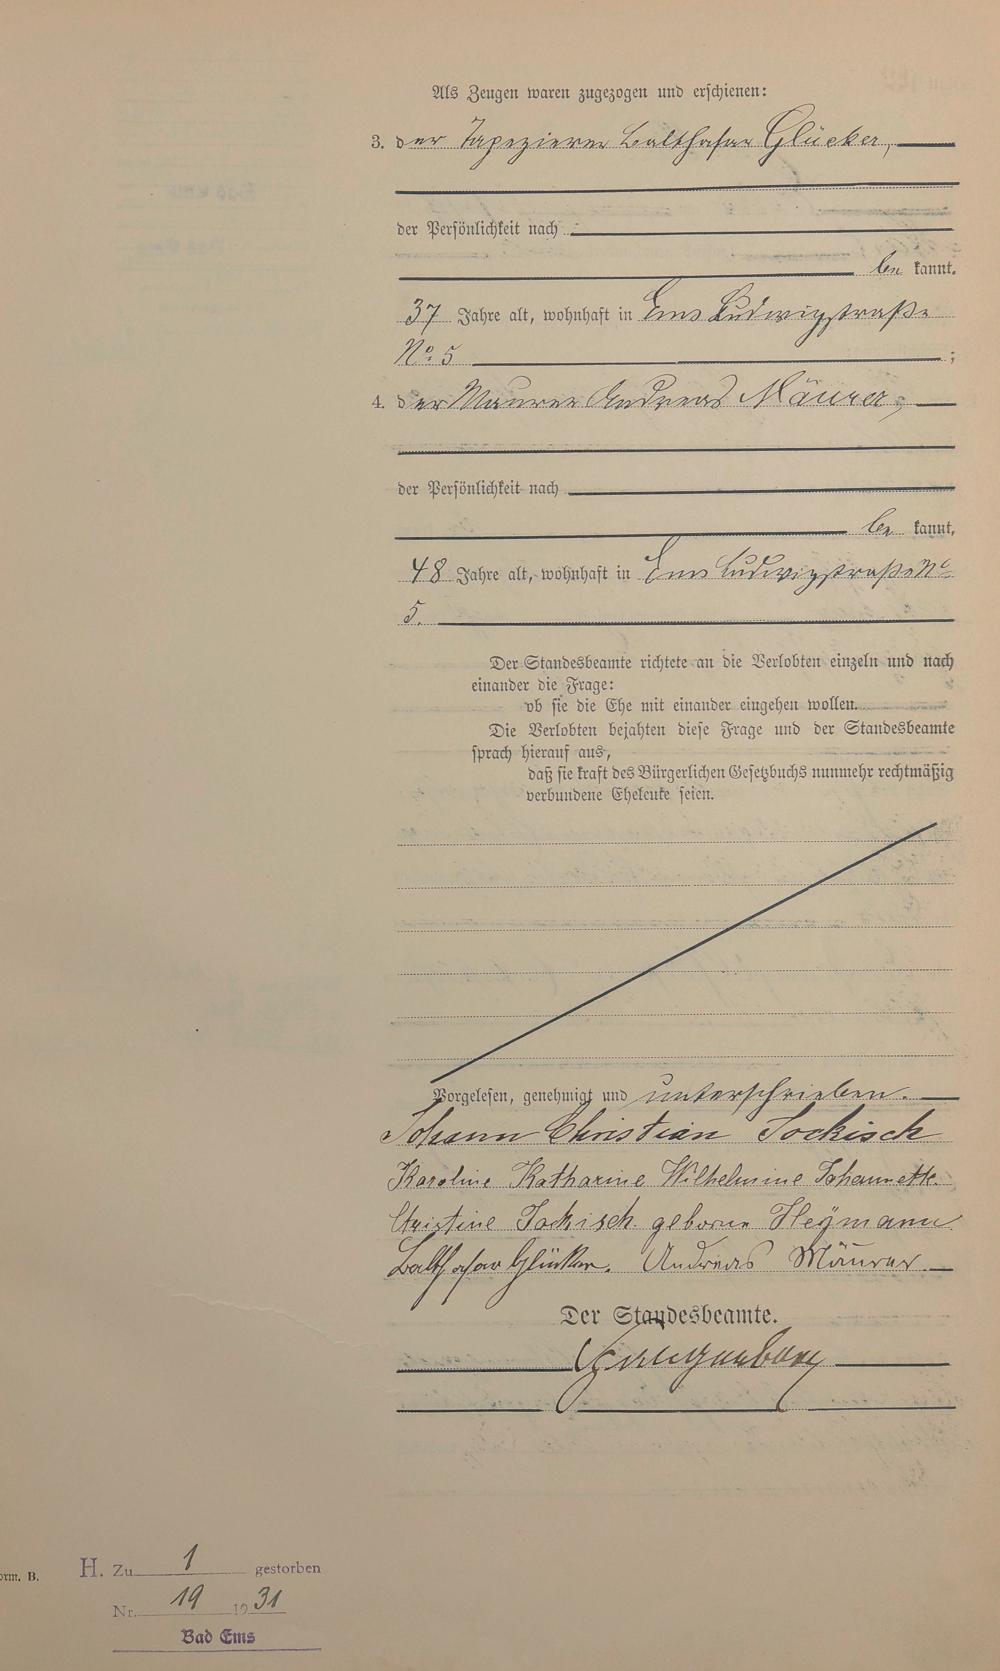 Als Zeugen waren zugezogen und erschienen:
3. der Tapezierer Balthasar Glücker,
der Persönlichkeit nach
be kannt,
37 Jahre alt, wohnhaft in Ems Ludwigstraße
No. 5 ;
4. der Maurer Andreas Mäurer,
der Persönlichkeit nach
be kannt,
48 Jahre alt, wohnhaft in Ems Ludwigstraße No
5.
Der Standesbeamte richtete an die Verlobten einzeln und nach
einander die Frage:
ob sie die Ehe mit einander eingehen wollen.
Die Verlobten bejahten diese Frage und der Standesbeamte
sprach hierauf aus,
daß sie kraft des Bürgerlichen Gesetzbuchs nunmehr rechtmäßig
verbundene Eheleute seien.
Vorgelesen, genehmigt und unterschrieben.
Johann Christian Jockisch
Karoline Katharine Wilhelmine Johannette
Christine Jockisch geborne Heymann
Balthasar Glücker. Andreas Mäurer
Der Standesbeamte.
H. Zu 1 gestorben
orm. B.
Nr. 19 1931
Bad Ems